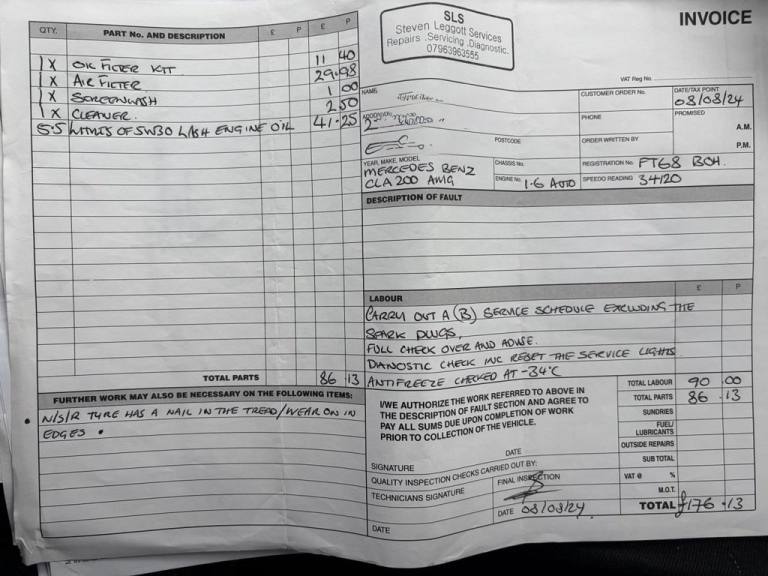 INVOICE
SLS
Steven Leggott Services
Repairs .Servicing .Diagnostic.
07963963555
VAT Reg No.
QTY. PART No. AND DESCRIPTION £ P £ P
1 X OIL FILTER KIT 11 40
1 X AIR FILTER 29.98
1 X SCREENWASH 1 00
1 X CLEANER. 2 50
5.5 OF 5W30 ENGINE OIL 41.25
TOTAL PARTS 86 13
FURTHER WORK MAY ALSO BE NECESSARY ON THE FOLLOWING ITEMS:
N/S/R TYRE HAS A NAIL IN THE TREAD/WEAR ON IN
EDGES •
NAME
CUSTOMER ORDER No.
DATE/TAX POINT
08/08/24
PHONE
PROMISED
A.M.
POSTCODE
ORDER WRITTEN BY
P.M.
YEAR, MAKE, MODEL
MERCEDES BENZ
CLA 200 AMG
CHASSIS No.
REGISTRATION No. FT68 BOH.
ENGINE No. 1.6 AUTO
SPEEDO READING 34120
DESCRIPTION OF FAULT
£ P
LABOUR
CARRY OUT A (B) SERVICE SCHEDULE EXCLUDING THE
SPARK PLUGS,
FULL CHECK OVER AND ADVISE.
DIANOSTIC CHECK INC RESET THE SERVICE LIGHTS
ANTIFREEZE CHECKED AT -34°C
I/WE AUTHORIZE THE WORK REFERRED TO ABOVE IN
THE DESCRIPTION OF FAULT SECTION AND AGREE TO
PAY ALL SUMS DUE UPON COMPLETION OF WORK
PRIOR TO COLLECTION OF THE VEHICLE.
DATE
SIGNATURE
QUALITY INSPECTION CHECKS CARRIED OUT BY:
TECHNICIANS SIGNATURE
FINAL INSPECTION
DATE 08/08/24
DATE
TOTAL LABOUR 90 .00
TOTAL PARTS 86 .13
SUNDRIES
FUEL/
LUBRICANTS
OUTSIDE REPAIRS
SUB TOTAL
VAT @ %
M.O.T.
TOTAL £176 .13